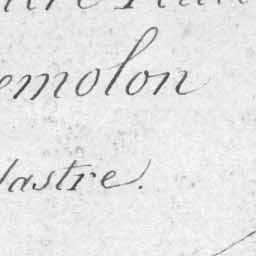 emolon
lastre.